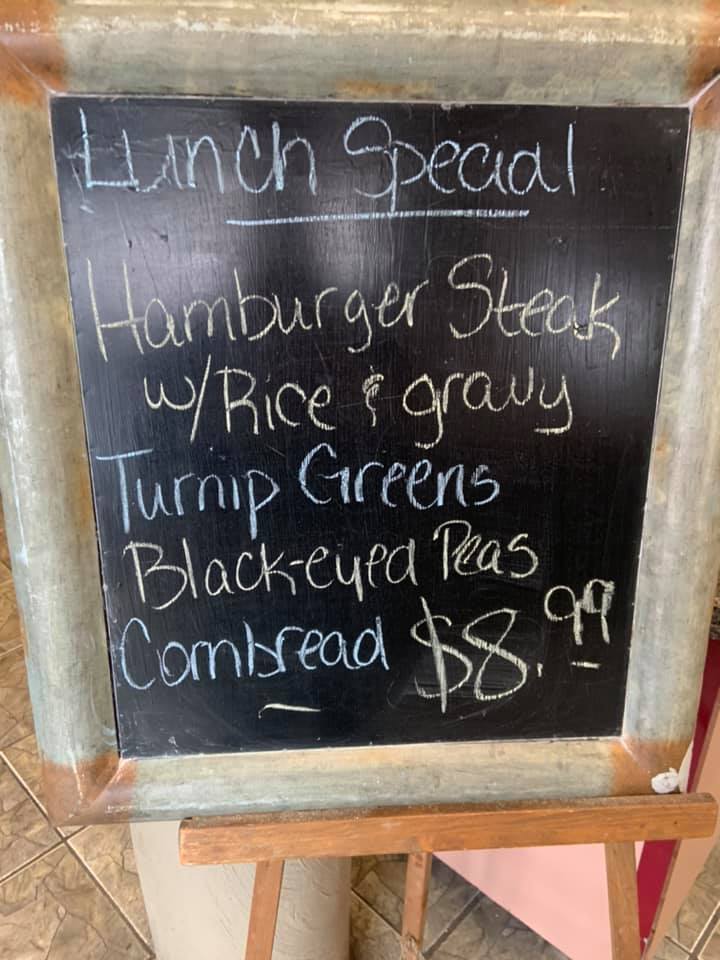 Lunch Special
Hamburger Steak
w/Rice & gravy
Turnip Greens
Black-eyed Peas
Cornbread $8.99